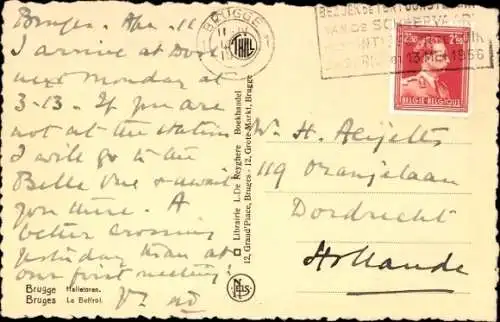 Bruges. Apr. 11
I arrive at Dord
next Monday at
3-13. If you are
not at the station
I will go to the
Belle Vue & await
you there. A
better crossing
yesterday than at
our first meeting!
Brugge Halletoren.
Bruges Le Beffroi.
BRUGGE
THILL
Librairie L. De Reyghere Boekhandel
12, Grand'Place, Bruges - 12, Grote-Markt, Brugge
NELS
VAN DE SCHEEPVAART
13 MEI 1956
2F90 2F90
BELGIE BELGIQUE
W. H.
119 Oranjelaan
Dordrecht
Hollande